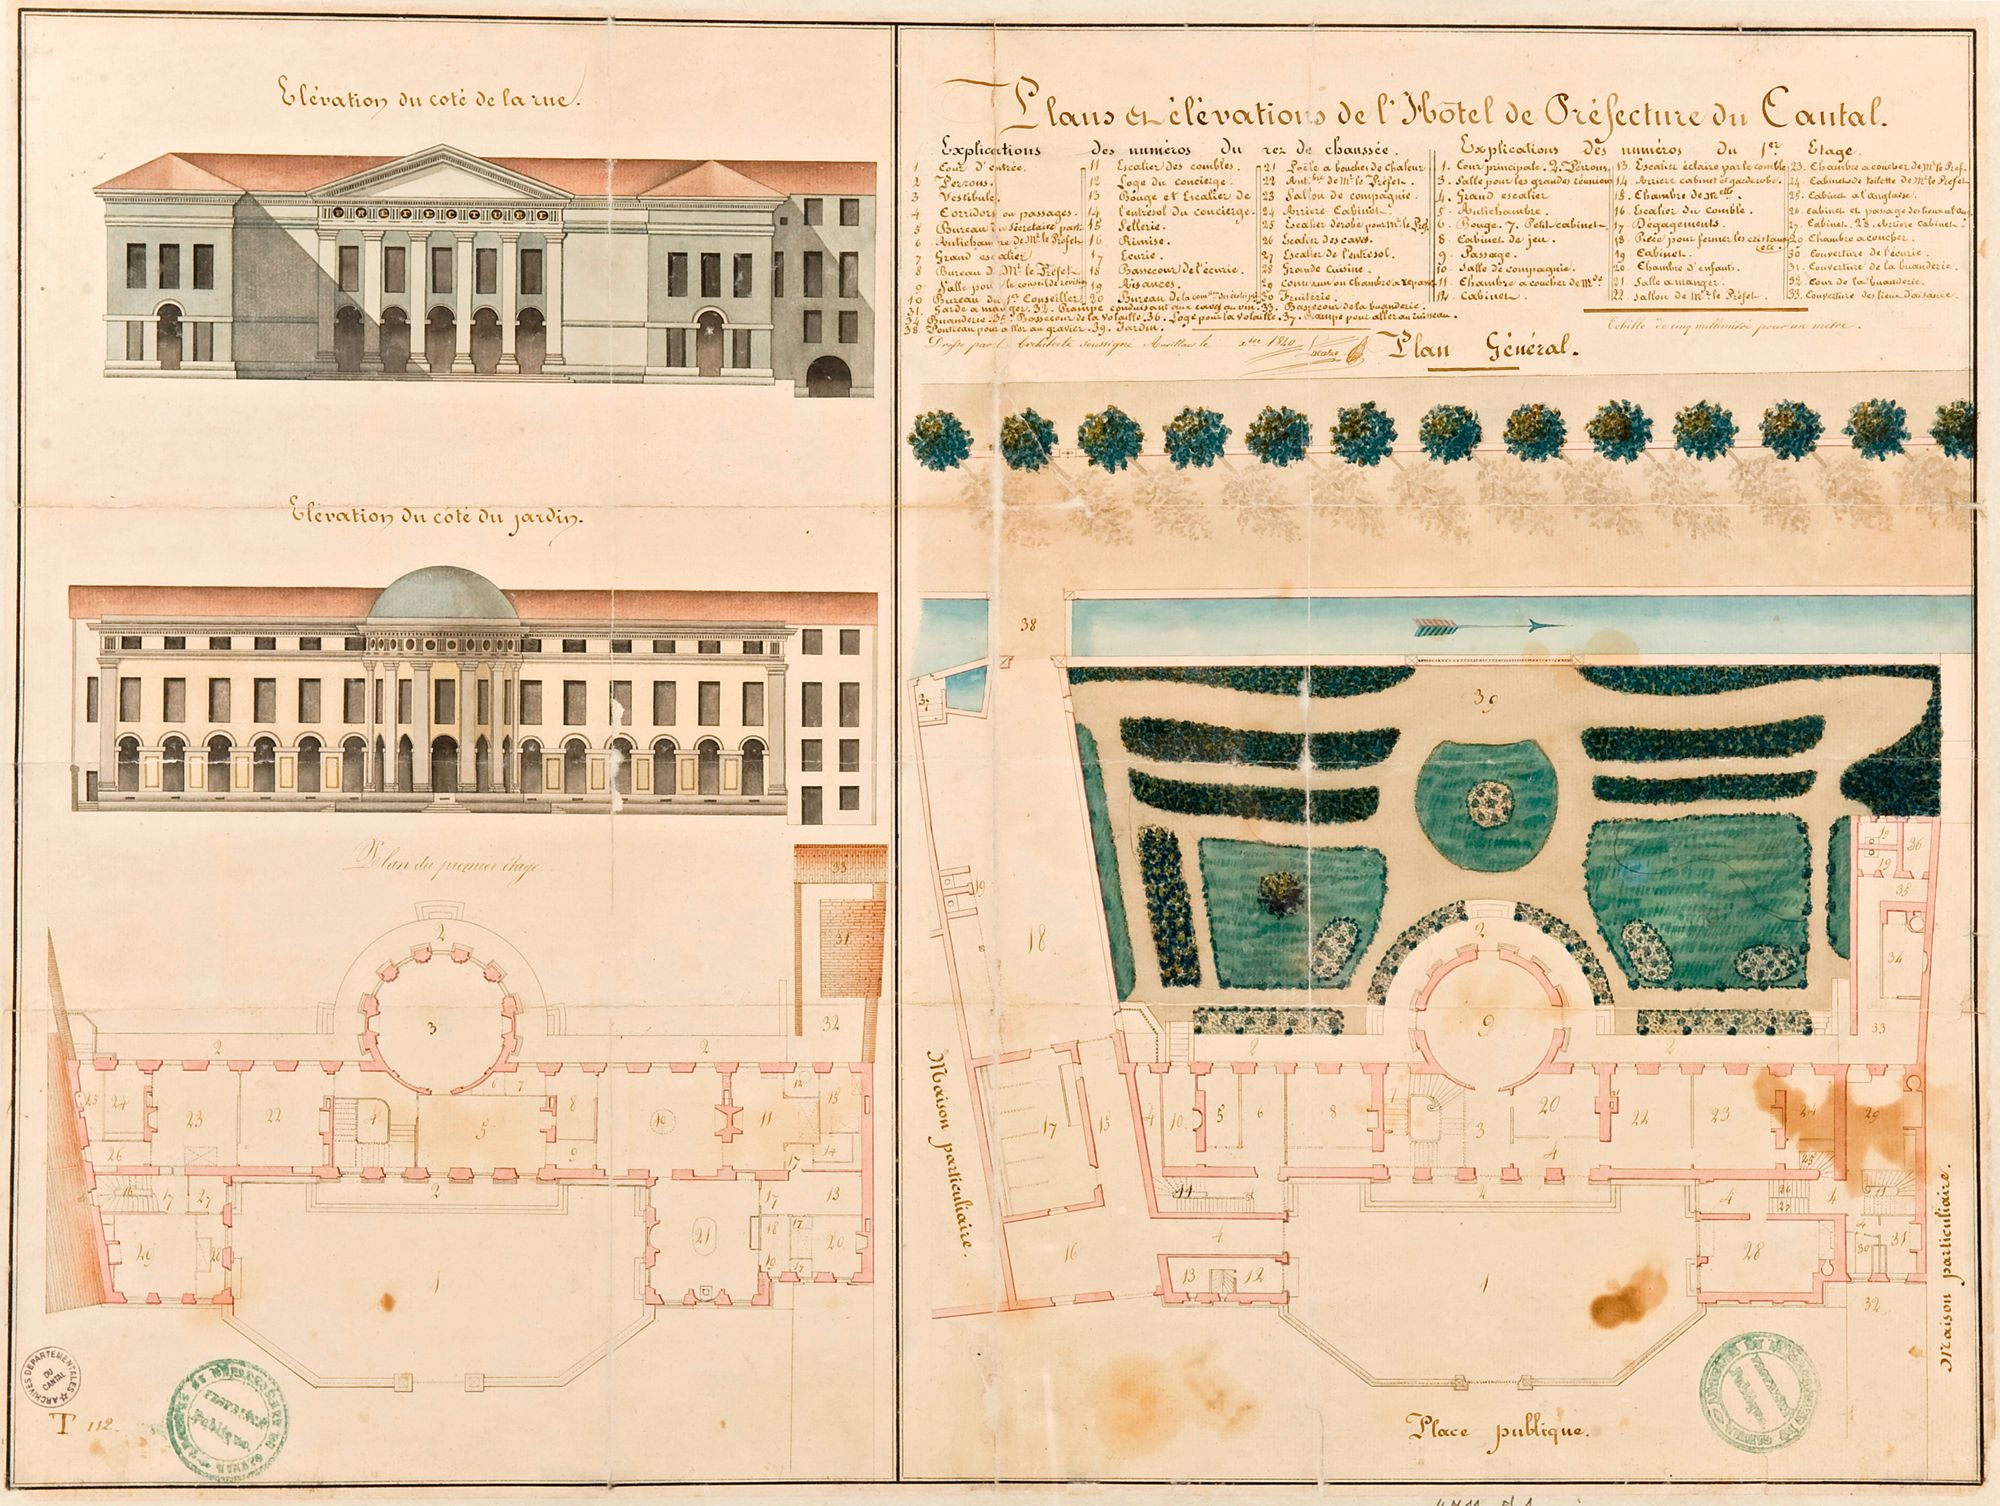 Elévation du coté de la rue.
PREFECTURE
Elévation du coté du jardin.
Plan du premier étage.
Plans et élévations de l'Hôtel de Préfecture du Cantal.
Explications des numéros du rez de chaussée.
1 Cour d'entrée.
2 Perrons.
3 Vestibule.
4 Corridors ou passages.
5 Bureau du Secrétaire part.
6 Antichambre de Mr. le Préfet.
7 Grand escalier
8 Bureau de Mr. le Préfet.
9 Salle pour le conseil de révision
10 Bureau du 1er Conseiller
11 Escalier des combles.
12 Loge du concierge.
13 Bouge et Escalier de
14 l'entresol du concierge.
15 Sellerie.
16 Rémise.
17 Ecurie.
18 Bassecour de l'écurie.
19 Aisances.
20 Bureau de la
21 Poële a bouches de chaleur
22 Antibre de Mr. le Préfet.
23 Sallon de compagnie.
24 Arriere Cabinet.
25 Escalier dérobé pour Mr. le Préf.
26 Escalier des caves.
27 Escalier de l'entresol.
28 Grande cuisine.
29 ou chambre a repasser
30 Fruiterie.
31. Garde a manger. 32. Rampe conduisant aux caves au vin. 33. Bassecour de la buanderie.
34 Buanderie. 35. Bassecour de la volaille. 36. Loge pour la volaille. 37. Rampe pour aller au ruisseau.
38 Ponceau pour aller au gravier. 39. Jardin.
Dressé par l'Architecte soussigné Aurillac le xbre 1840
Explications des numéros du 1er Etage.
1. Cour principale. 2. Perrons.
3. Salle pour les grandes réunions
4. Grand escalier
5. Antichambre.
6. Bouge. 7. Petit cabinet.
8. Cabinet de jeu.
9. Passage.
10. Salle de compagnie.
11. Chambre a coucher de Mde
12. Cabinet.
13. Escalier éclairé par le comble
14. Arriere cabinet et garderobe.
15. Chambre de Melle
16. Escalier du comble.
17. Dégagements.
18. Pièce pour fermer les cristaux etc.
19. Cabinet.
20. Chambre d'enfants.
21. Salle a manger.
22. Sallon de Mr. le Préfet.
23. Chambre a coucher de Mr. le Préf.
24. Cabinet de toilette de Mr. le Préfet
25. Cabinet a l'anglaise.
26. Cabinet et passage des lieux
27. Cabinet. 28. Arriere cabinet.
29. Chambre a coucher.
30. Couverture de l'écurie.
31. Couverture de la buanderie.
32. Cour de la buanderie.
33. Couverture des lieux d'aisance.
Echelle de cinq millimètre pour un mètre.
Plan Général.
38
37
39
19
18
19
19
36
35
34
33
2
9
2
2
17
15
4
10
5
6
8
7
3
20
22
23
24
29
4
25
11
2
4
26
27
4
11
16
4
13
12
1
28
4
30
31
32
Maison particulière.
Maison particulière.
Place publique.
33
31
32
2
3
2
2
25
24
23
22
4
5
6
7
8
9
10
11
12
15
14
17
26
16
17
27
2
17
13
29
28
21
18
17
20
19
17
1
ARCHIVES DEPARTEMENTALES DU CANTAL
T 112.